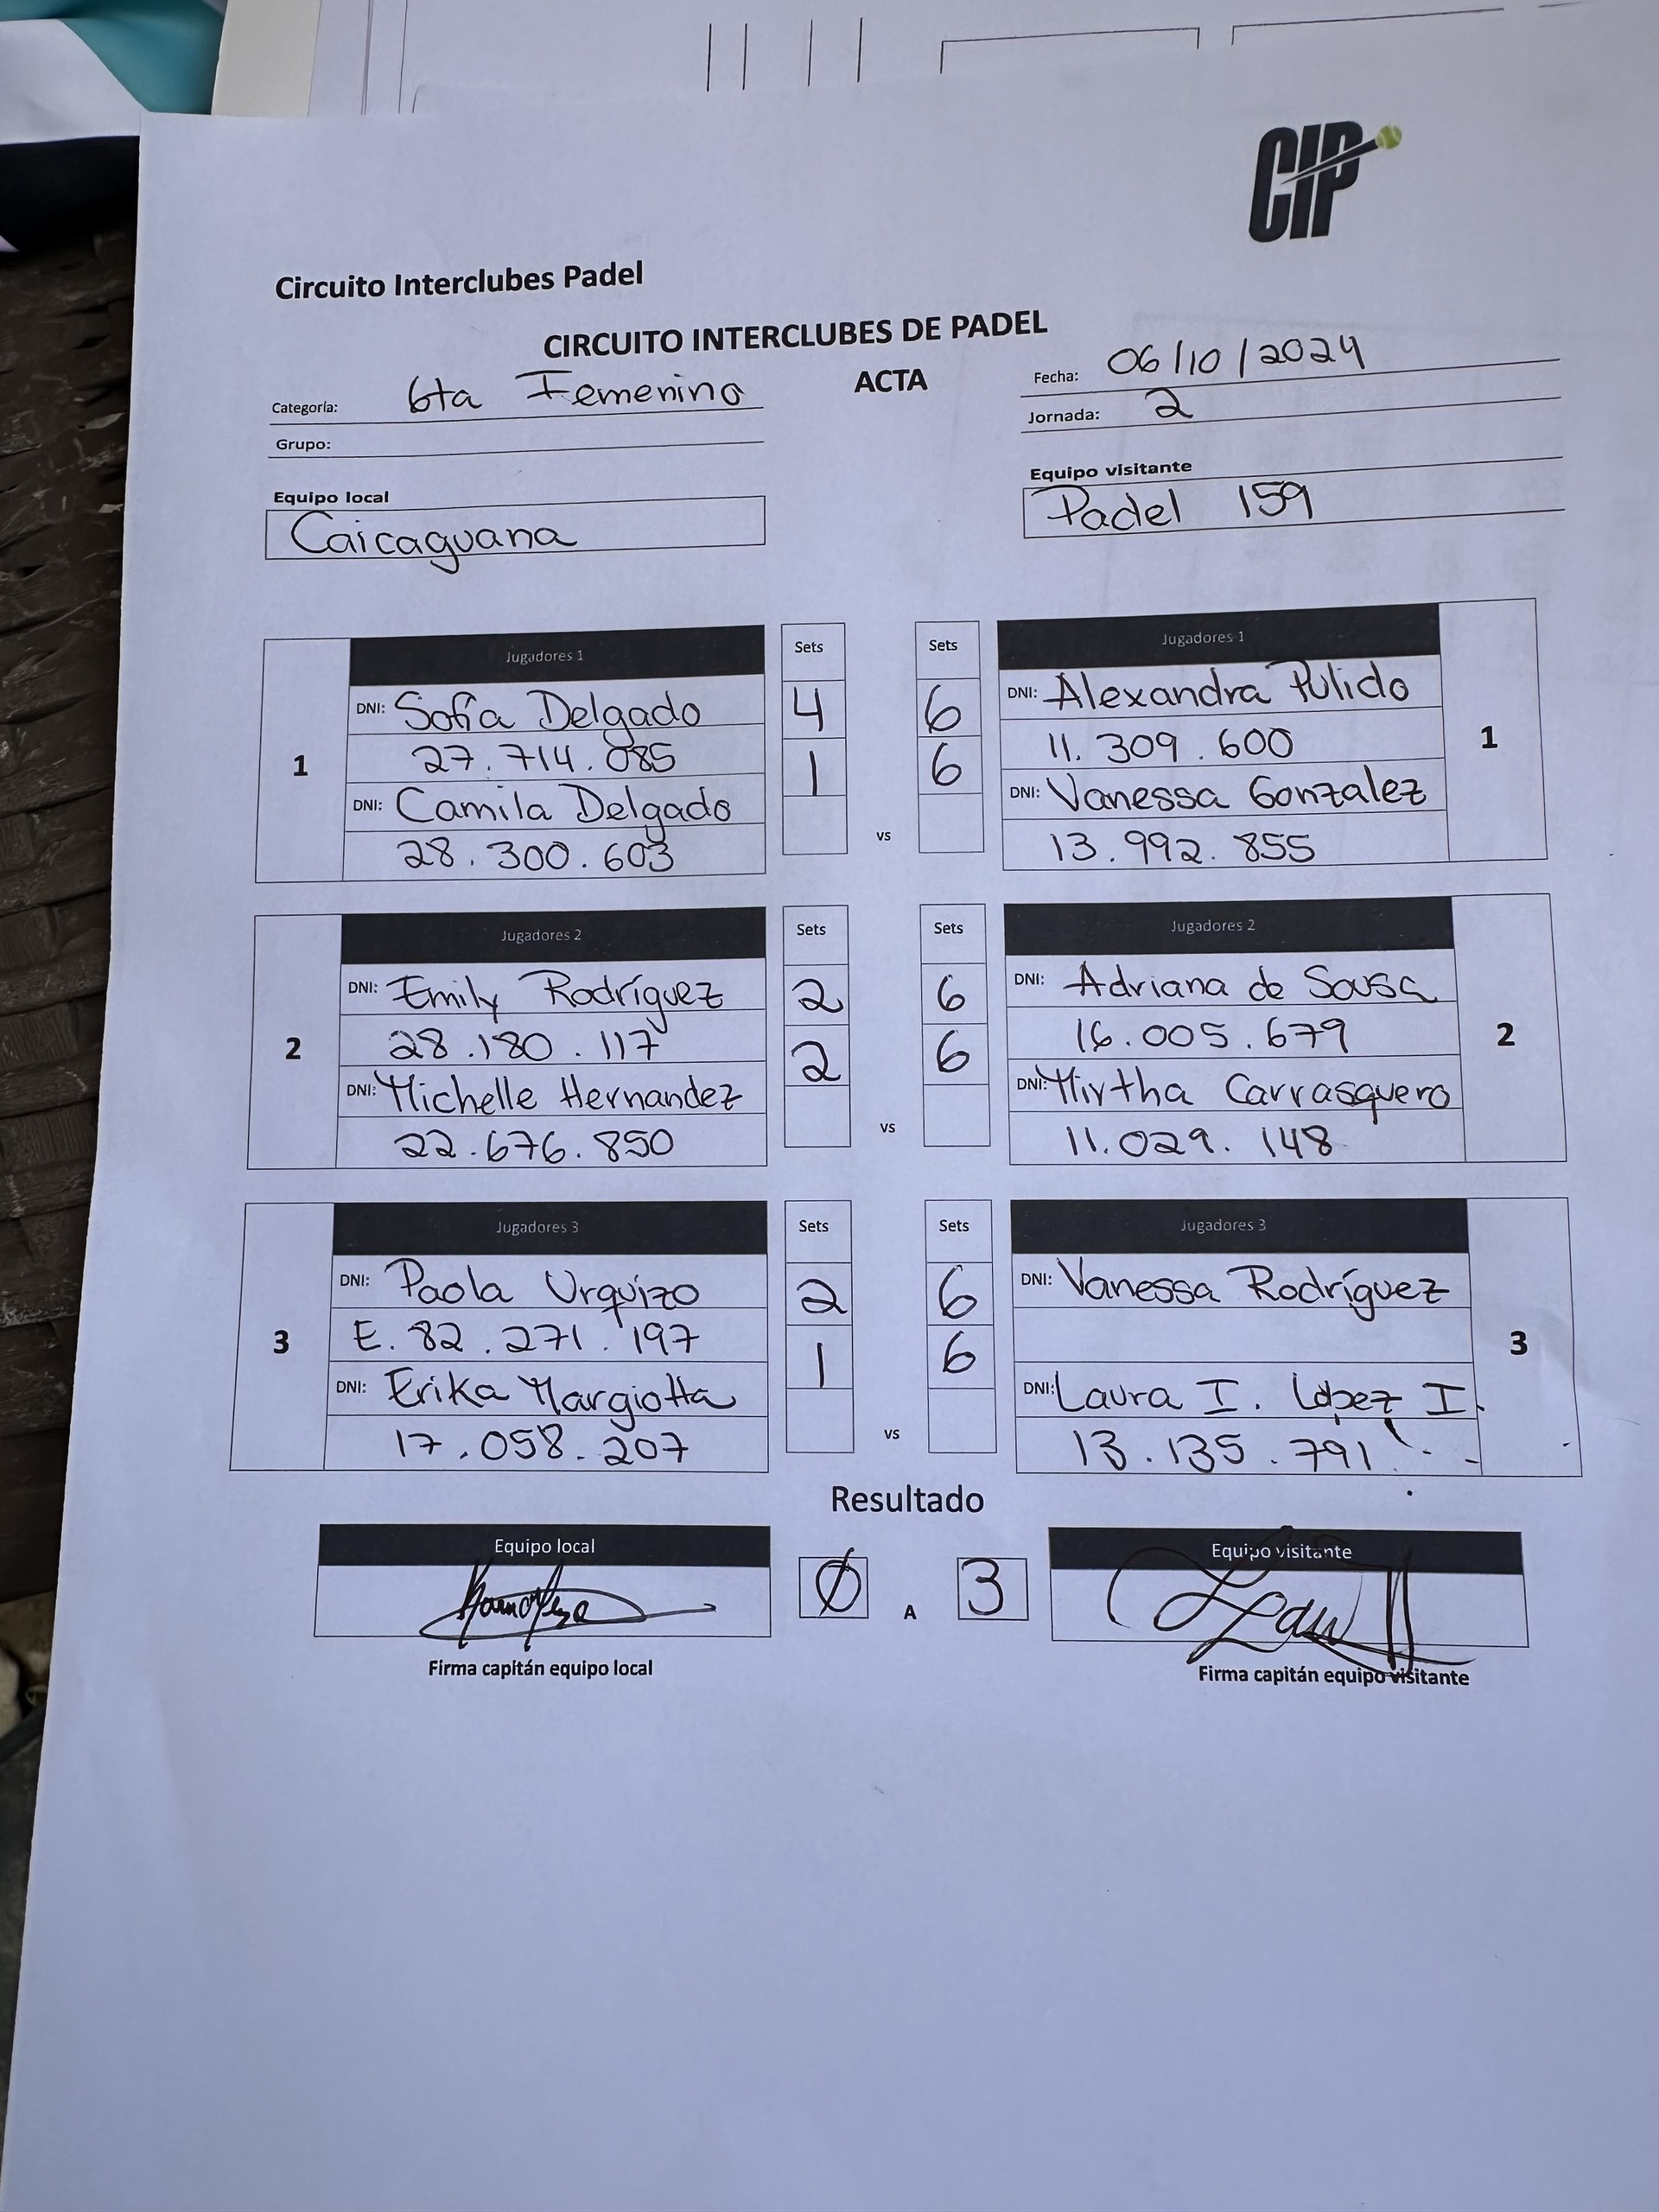 CIP
Circuito Interclubes Padel
CIRCUITO INTERCLUBES DE PADEL
ACTA
Categoría: 6ta Femenino
Fecha: 06/10/2024
Grupo:
Jornada: 2
Equipo local
Equipo visitante
Caicaguana
Padel 159
Jugadores 1 Sets Sets Jugadores 1
1
DNI: Sofía Delgado 4 6 DNI: Alexandra Pulido
27.714.085 1 6 11.309.600
DNI: Camila Delgado vs DNI: Vanessa Gonzalez
28.300.603 13.992.855
1
Jugadores 2 Sets Sets Jugadores 2
2
DNI: Emily Rodríguez 2 6 DNI: Adriana de Sousa
28.180.117 2 6 16.005.679
DNI: Michelle Hernandez vs DNI: Mirtha Carrasquero
22.676.850 11.029.148
2
Jugadores 3 Sets Sets Jugadores 3
3
DNI: Paola Urquizo 2 6 DNI: Vanessa Rodríguez
E. 82.271.197 1 6
DNI: Erika Margiotta vs DNI: Laura I. López I.
17.058.207 13.135.791
3
Resultado
Equipo local Ø A 3 Equipo visitante
Firma capitán equipo local
Firma capitán equipo visitante